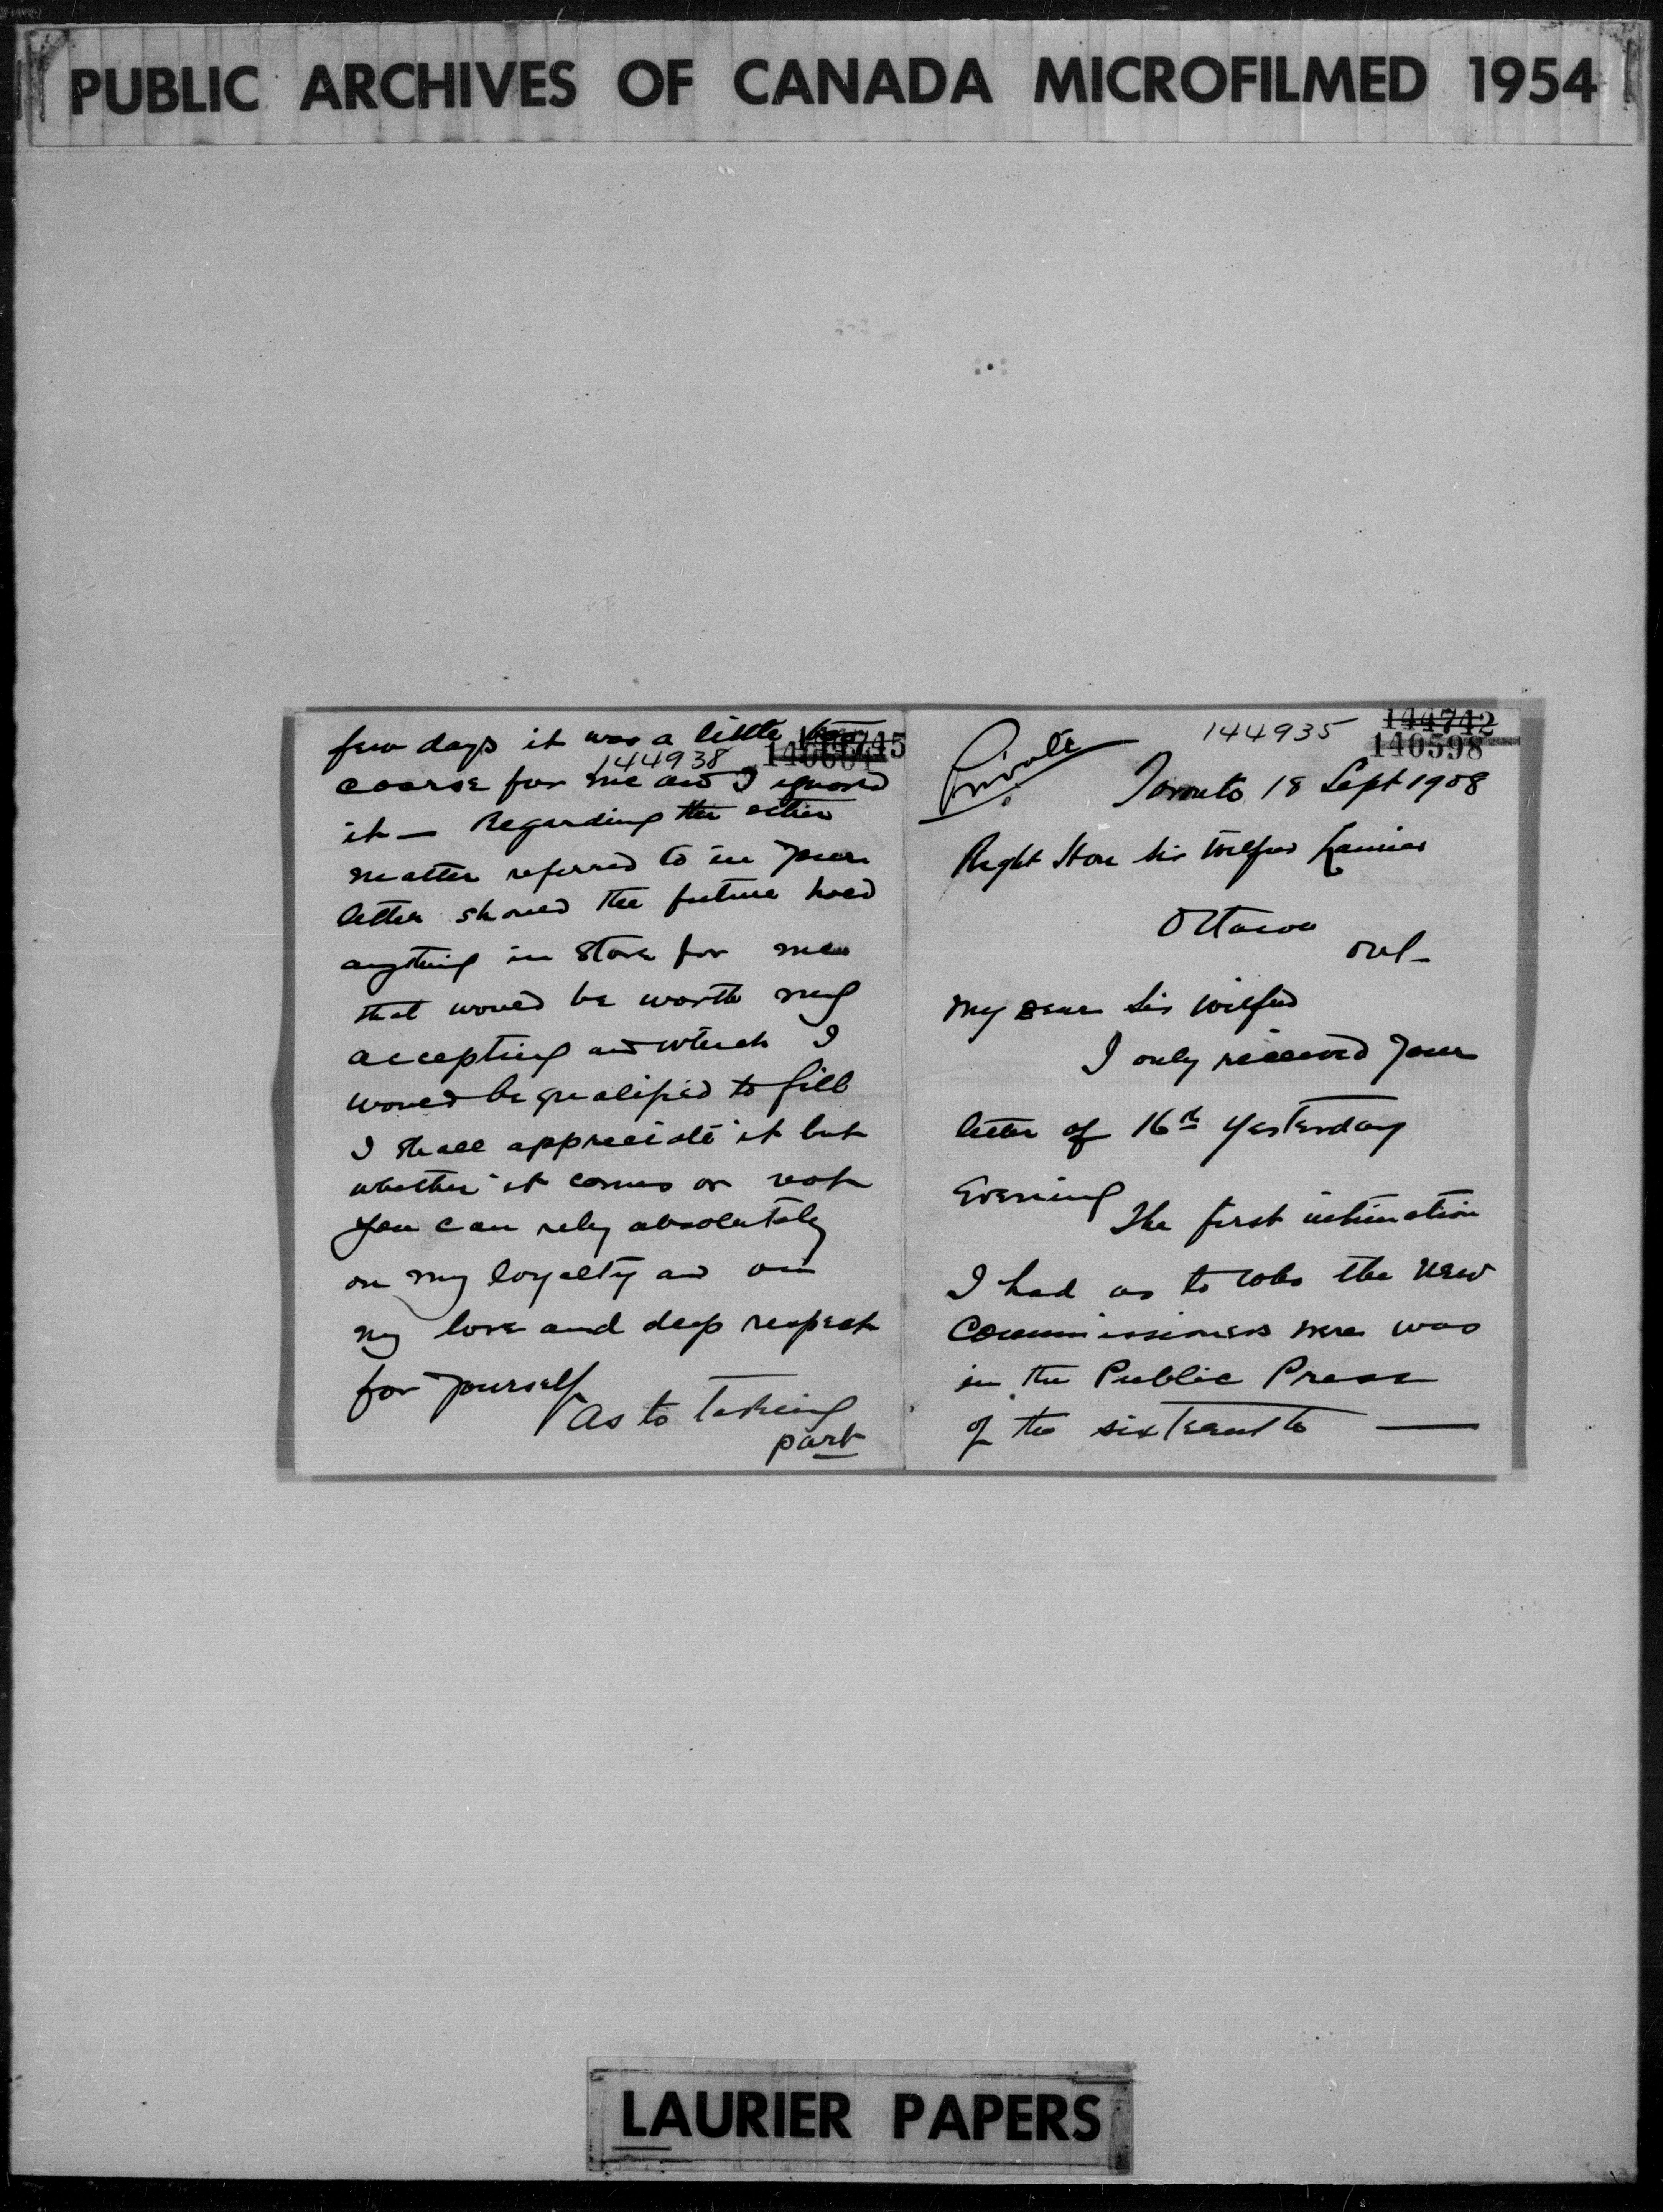 PUBLIC ARCHIVES OF CANADA MICROFILMED 1954
few days it was a little too
144938
coarse for me and I ignored
it — Regarding the other
matter referred to in your
letter should the future hold
anything in store for me
that would be worth my
accepting and which I
would be qualified to fill
I shall appreciate it but
whether it comes or not
you can rely absolutely
on my loyalty and on
my love and deep respect
for yourself
As to taking
part
Private
144935
144742
140598
Toronto 18 Sept 1908
Right Hon Sir Wilfrid Laurier
Ottawa
Ont-
My Dear Sir Wilfrid
I only received your
letter of 16th yesterday
Evening
The first intimation
I had as to who the new
Commissioners were was
in the Public Press
of the sixteenth —
LAURIER PAPERS